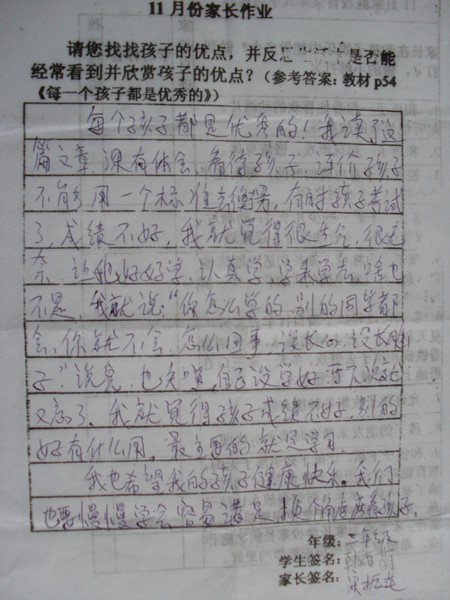 11月份家长作业
请您找找孩子的优点，并反思 是否能
经常看到并欣赏孩子的优点？（参考答案：教材p54
《每一个孩子都是优秀的》）
每个孩子都是优秀的！我读了这
篇文章，深有体会，看待孩子，评价孩子
不能用一个标准去衡量，有时孩子考试
了，成绩不好，我就觉得很生气，很无
奈，让他好好学，认真学，学来学去，啥也
不是，我就说：“你怎么学的，别的同学都
会，你就不会，怎么回事，没长心，没长脑
子”说完，也知道自己没
我就觉得孩子成绩不好，别的
好有什么用，最主要的就是学习
我也希望我的孩子健康快乐。我们
也要慢慢学会容易满足，换个角度看孩子。
年级：二年级
学生签名：
家长签名：